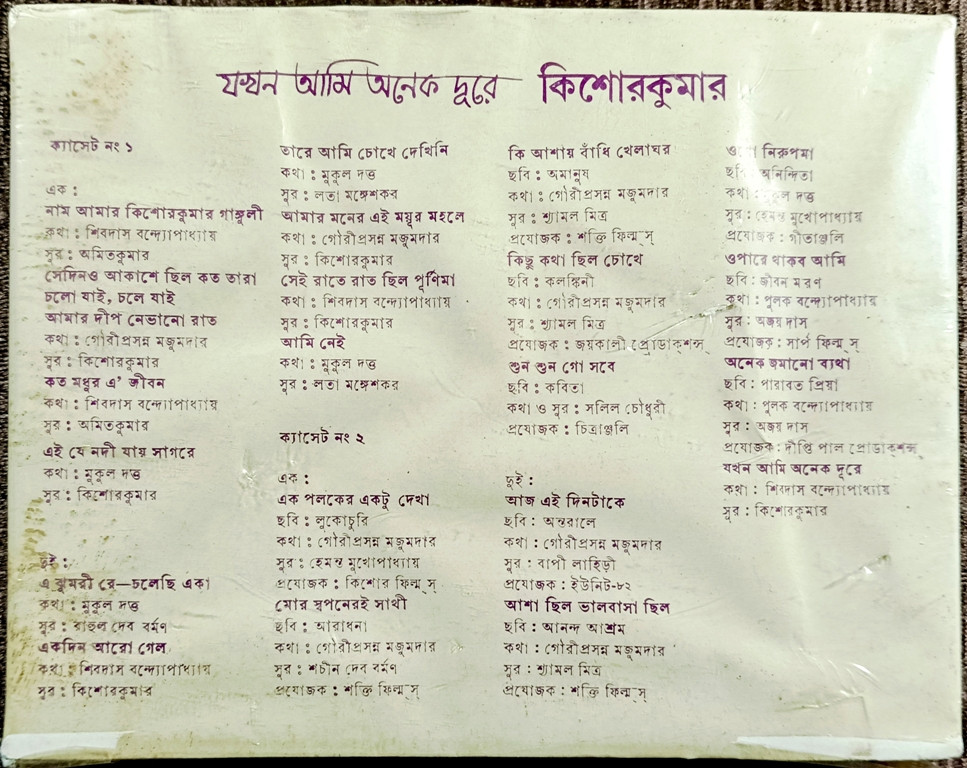 যখন আমি অনেক দূরে কিশোরকুমার
ক্যাসেট নং ১
এক :
নাম আমার কিশোরকুমার গাঙ্গুলী
কথা : শিবদাস বন্দ্যোপাধ্যায়
সুর : অমিতকুমার
সেদিনও আকাশে ছিল কত তারা
চলো যাই, চলে যাই
আমার দীপ নেভানো রাত
কথা : গৌরীপ্রসন্ন মজুমদার
সুর : কিশোরকুমার
কত মধুর এ' জীবন
কথা : শিবদাস বন্দ্যোপাধ্যায়
সুর : অমিতকুমার
এই যে নদী যায় সাগরে
কথা : মুকুল দত্ত
সুর : কিশোরকুমার
দুই :
এ ঝুমরী রে—চলেছি একা
কথা : মুকুল দত্ত
সুর : রাহুল দেব বর্মণ
একদিন আরো গেল
কথা : শিবদাস বন্দ্যোপাধ্যায়
সুর : কিশোরকুমার
তারে আমি চোখে দেখিনি
কথা : মুকুল দত্ত
সুর : লতা মঙ্গেশকর
আমার মনের এই ময়ূর মহলে
কথা : গৌরীপ্রসন্ন মজুমদার
সুর : কিশোরকুমার
সেই রাতে রাত ছিল পূর্ণিমা
কথা : শিবদাস বন্দ্যোপাধ্যায়
সুর : কিশোরকুমার
আমি নেই
কথা : মুকুল দত্ত
সুর : লতা মঙ্গেশকর
ক্যাসেট নং ২
এক :
এক পলকের একটু দেখা
ছবি : লুকোচুরি
কথা : গৌরীপ্রসন্ন মজুমদার
সুর : হেমন্ত মুখোপাধ্যায়
প্রযোজক : কিশোর ফিল্ম্‌স্
মোর স্বপনেরই সাথী
ছবি : আরাধনা
কথা : গৌরীপ্রসন্ন মজুমদার
সুর : শচীন দেব বর্মণ
প্রযোজক : শক্তি ফিল্ম্‌স্
কি আশায় বাঁধি খেলাঘর
ছবি : অমানুষ
কথা : গৌরীপ্রসন্ন মজুমদার
সুর : শ্যামল মিত্র
প্রযোজক : শক্তি ফিল্ম্‌স্
কিছু কথা ছিল চোখে
ছবি : কলঙ্কিনী
কথা : গৌরীপ্রসন্ন মজুমদার
সুর : শ্যামল মিত্র
প্রযোজক : জয়কালী প্রোডাক্‌শন্স্
শুন শুন গো সবে
ছবি : কবিতা
কথা ও সুর : সলিল চৌধুরী
প্রযোজক : চিত্রাঞ্জলি
দুই :
আজ এই দিনটাকে
ছবি : অন্তরালে
কথা : গৌরীপ্রসন্ন মজুমদার
সুর : বাপী লাহিড়ী
প্রযোজক : ইউনিট-৮২
আশা ছিল ভালবাসা ছিল
ছবি : আনন্দ আশ্রম
কথা : গৌরীপ্রসন্ন মজুমদার
সুর : শ্যামল মিত্র
প্রযোজক : শক্তি ফিল্ম্‌স্
নিরুপমা
ছবি : অনিন্দিতা
কথা : মুকুল দত্ত
সুর : হেমন্ত মুখোপাধ্যায়
প্রযোজক : গীতাঞ্জলি
ওপারে থাকব আমি
ছবি : জীবন মরণ
কথা : পুলক বন্দ্যোপাধ্যায়
সুর : অজয় দাস
প্রযোজক : সার্প ফিল্ম্‌স্
অনেক জমানো ব্যথা
ছবি : পারাবত প্রিয়া
কথা : পুলক বন্দ্যোপাধ্যায়
সুর : অজয় দাস
প্রযোজক : দীপ্তি পাল প্রোডাক্‌শন্স্
যখন আমি অনেক দূরে
কথা : শিবদাস বন্দ্যোপাধ্যায়
সুর : কিশোরকুমার